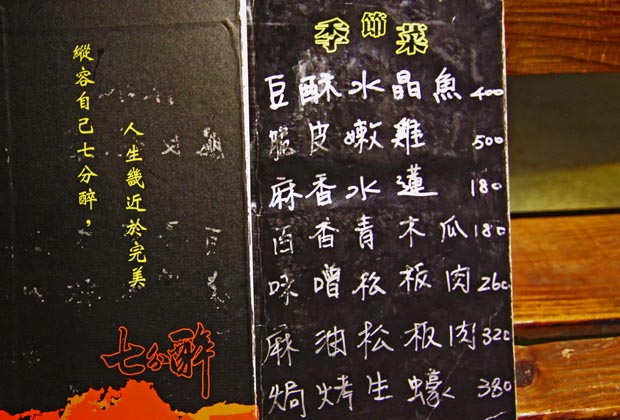 縱容自己七分醉，
人生幾近於完美
七分醉
季節菜
豆酥水晶魚 400
脆皮嫩雞 500
麻香水蓮 180
百香青木瓜 180
味噌松板肉 260
麻油松板肉 320
焗烤生蠔 380